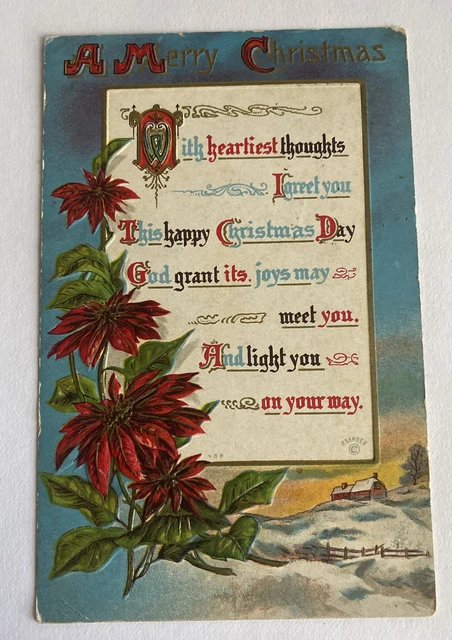 A Merry Christmas
With heartiest thoughts
I greet you
This happy Christmas Day
God grant its. joys may
meet you.
And light you
on your way.
©